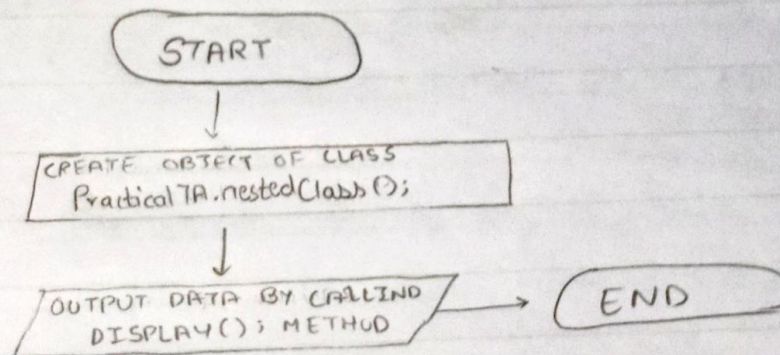 START
CREATE OBJECT OF CLASS
Practical 7A.nestedClass();
OUTPUT DATA BY CALLIND
DISPLAY(); METHOD
END